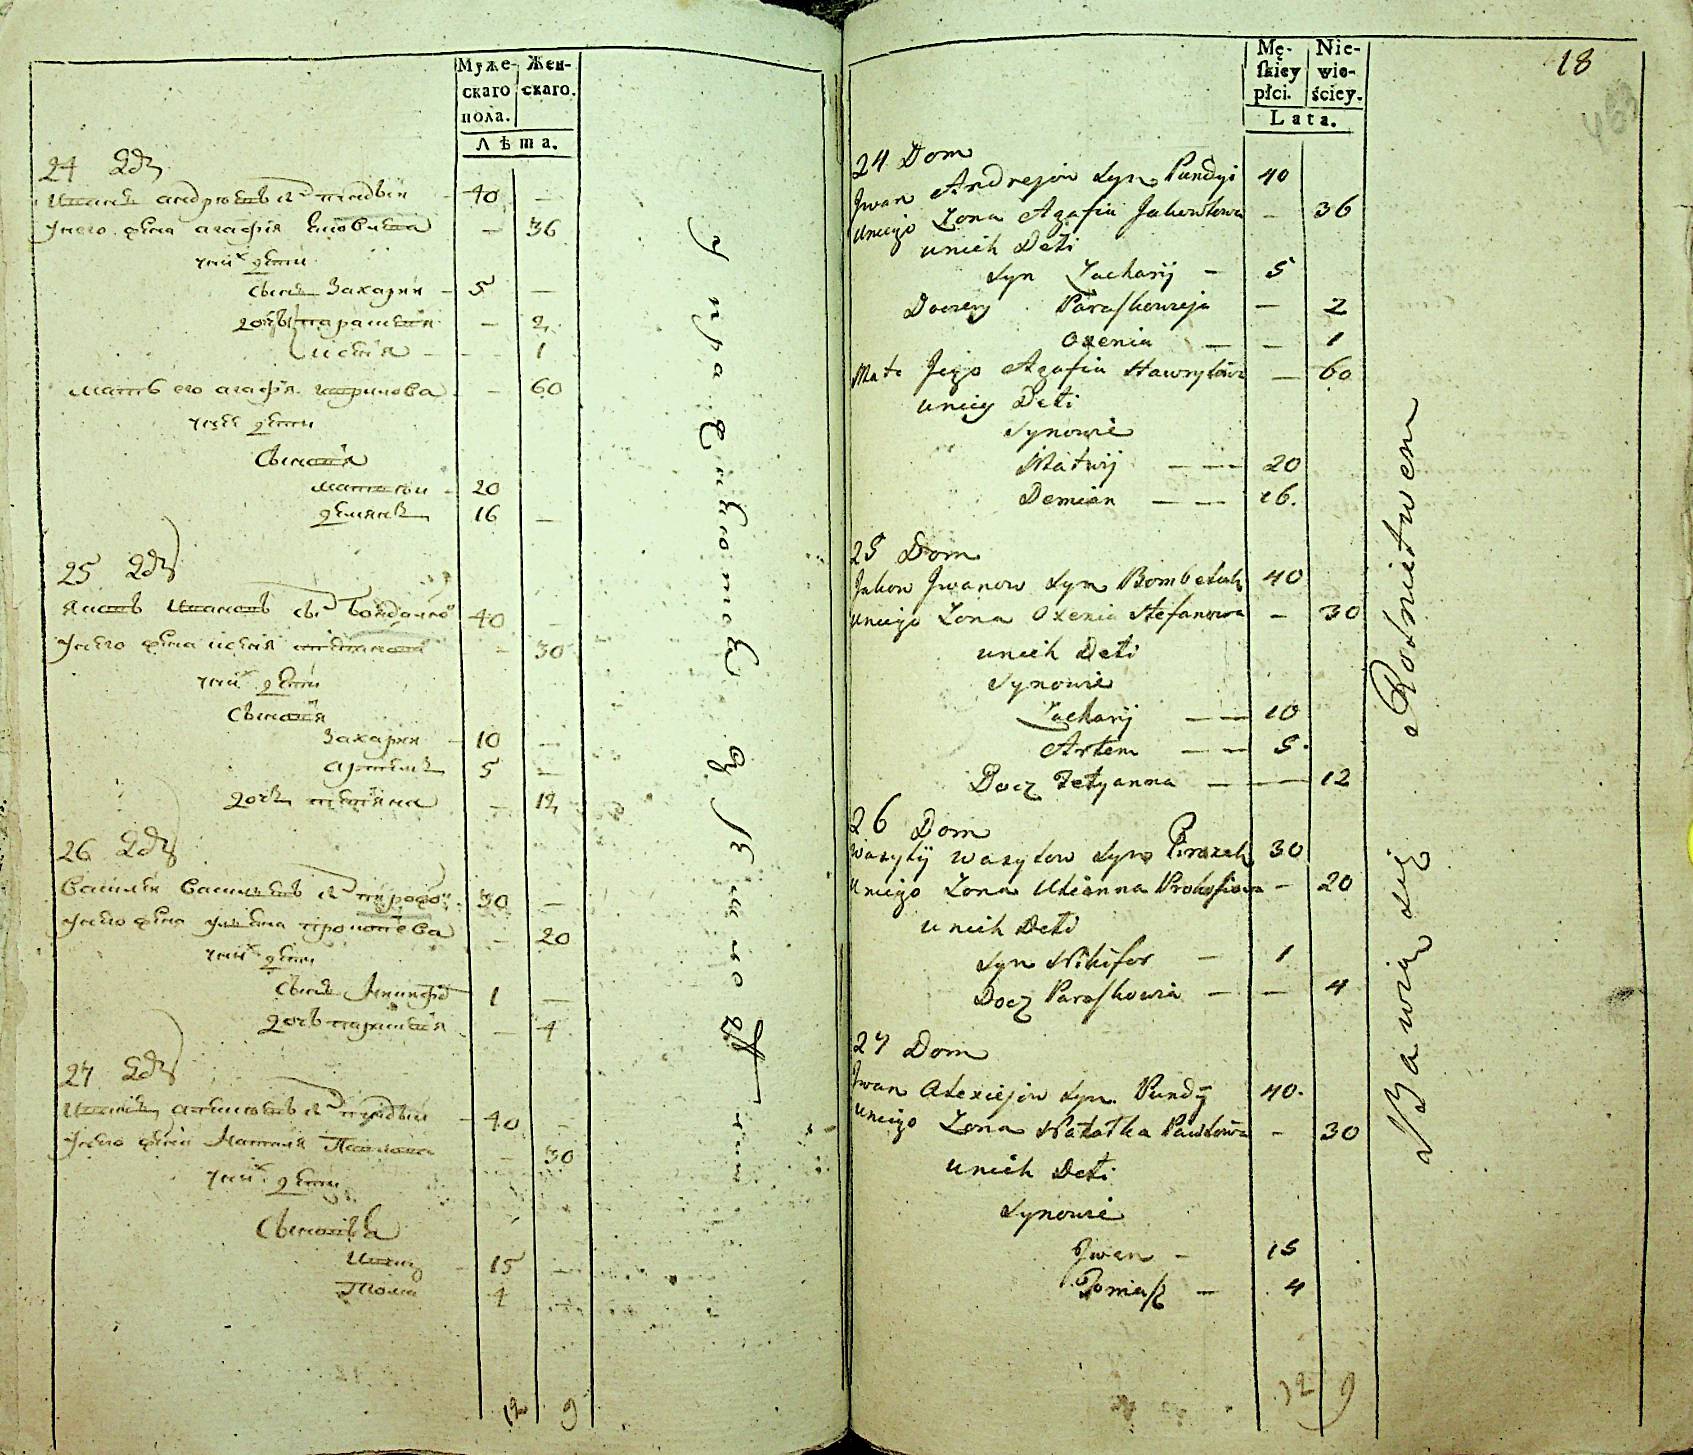 Муже-
скаго
пола.
Жен-
скаго.
Лѣта.
24 Дом
Иванъ Андрюевъ сынъ Пундый 40 —
у него жена Агафия Яковлева — 36
у них дети
Сынъ Захарий — 5 —
дочь Параскевия — 2
Ксения — 1
Мать его Агафия — 60
у нее дети
Сыновя
Матвей - 20
Демянъ 16 —
25 Дом
Яковъ Ивановъ сынъ 40
у него жена Ксения Степанова - 30
у них дети
Сыновя
Захария - 10 —
Артемъ 5 —
дочь Тетяна — 12
26 Дом
Василий Васильевъ сынъ 30 —
у него жена Ульяна — 20
у них дети
Сынъ 1 —
дочь Параскевия — 4
27 Дом
Иванъ Алексеевъ сынъ Пундый - 40 -
у него жена Наталя Павлова - 30
у них дети
Сыновья
Иванъ - 15 —
Тома 4
12 9
Mę-
ſkiey
płci.
Nie-
wie-
ściey.
Lata.
18
24 Dom
Jwan Andrejow Syn Pundyi 40
uniego Zona Agafia Jakowlowa — 36
unich Deti
Syn Zacharij — 5
Doczery Paraſkowieja — 2
Oxenia — — 1
Mate Jego Agafia Hawryłowa — 60
uniey Deti
Synowie
Matwij — — 20
Demian — — 16.
25 Dom
Jakow Jwanow Syn 40
uniego Zona Oxenia Stefanowa — 30
unich Deti
Synowie
Zacharij — — 10
Artem — — 5.
Docz Tetyanna — — 12
26 Dom
Wasyly Wasylow Syn 30
uniego Zona Ulianna Prokofiowa — 20
unich Deti
Syn Nikifor — 1
Docz Paraſkowia — — 4
27 Dom
Jwan Alexiejow Syn Pundy 40.
uniego Zona Natalka Pawłowa — 30
unich Deti
Synowie
Jwan — 15
Tomaſz — 4
12 9
Bawią się Rolnictwem